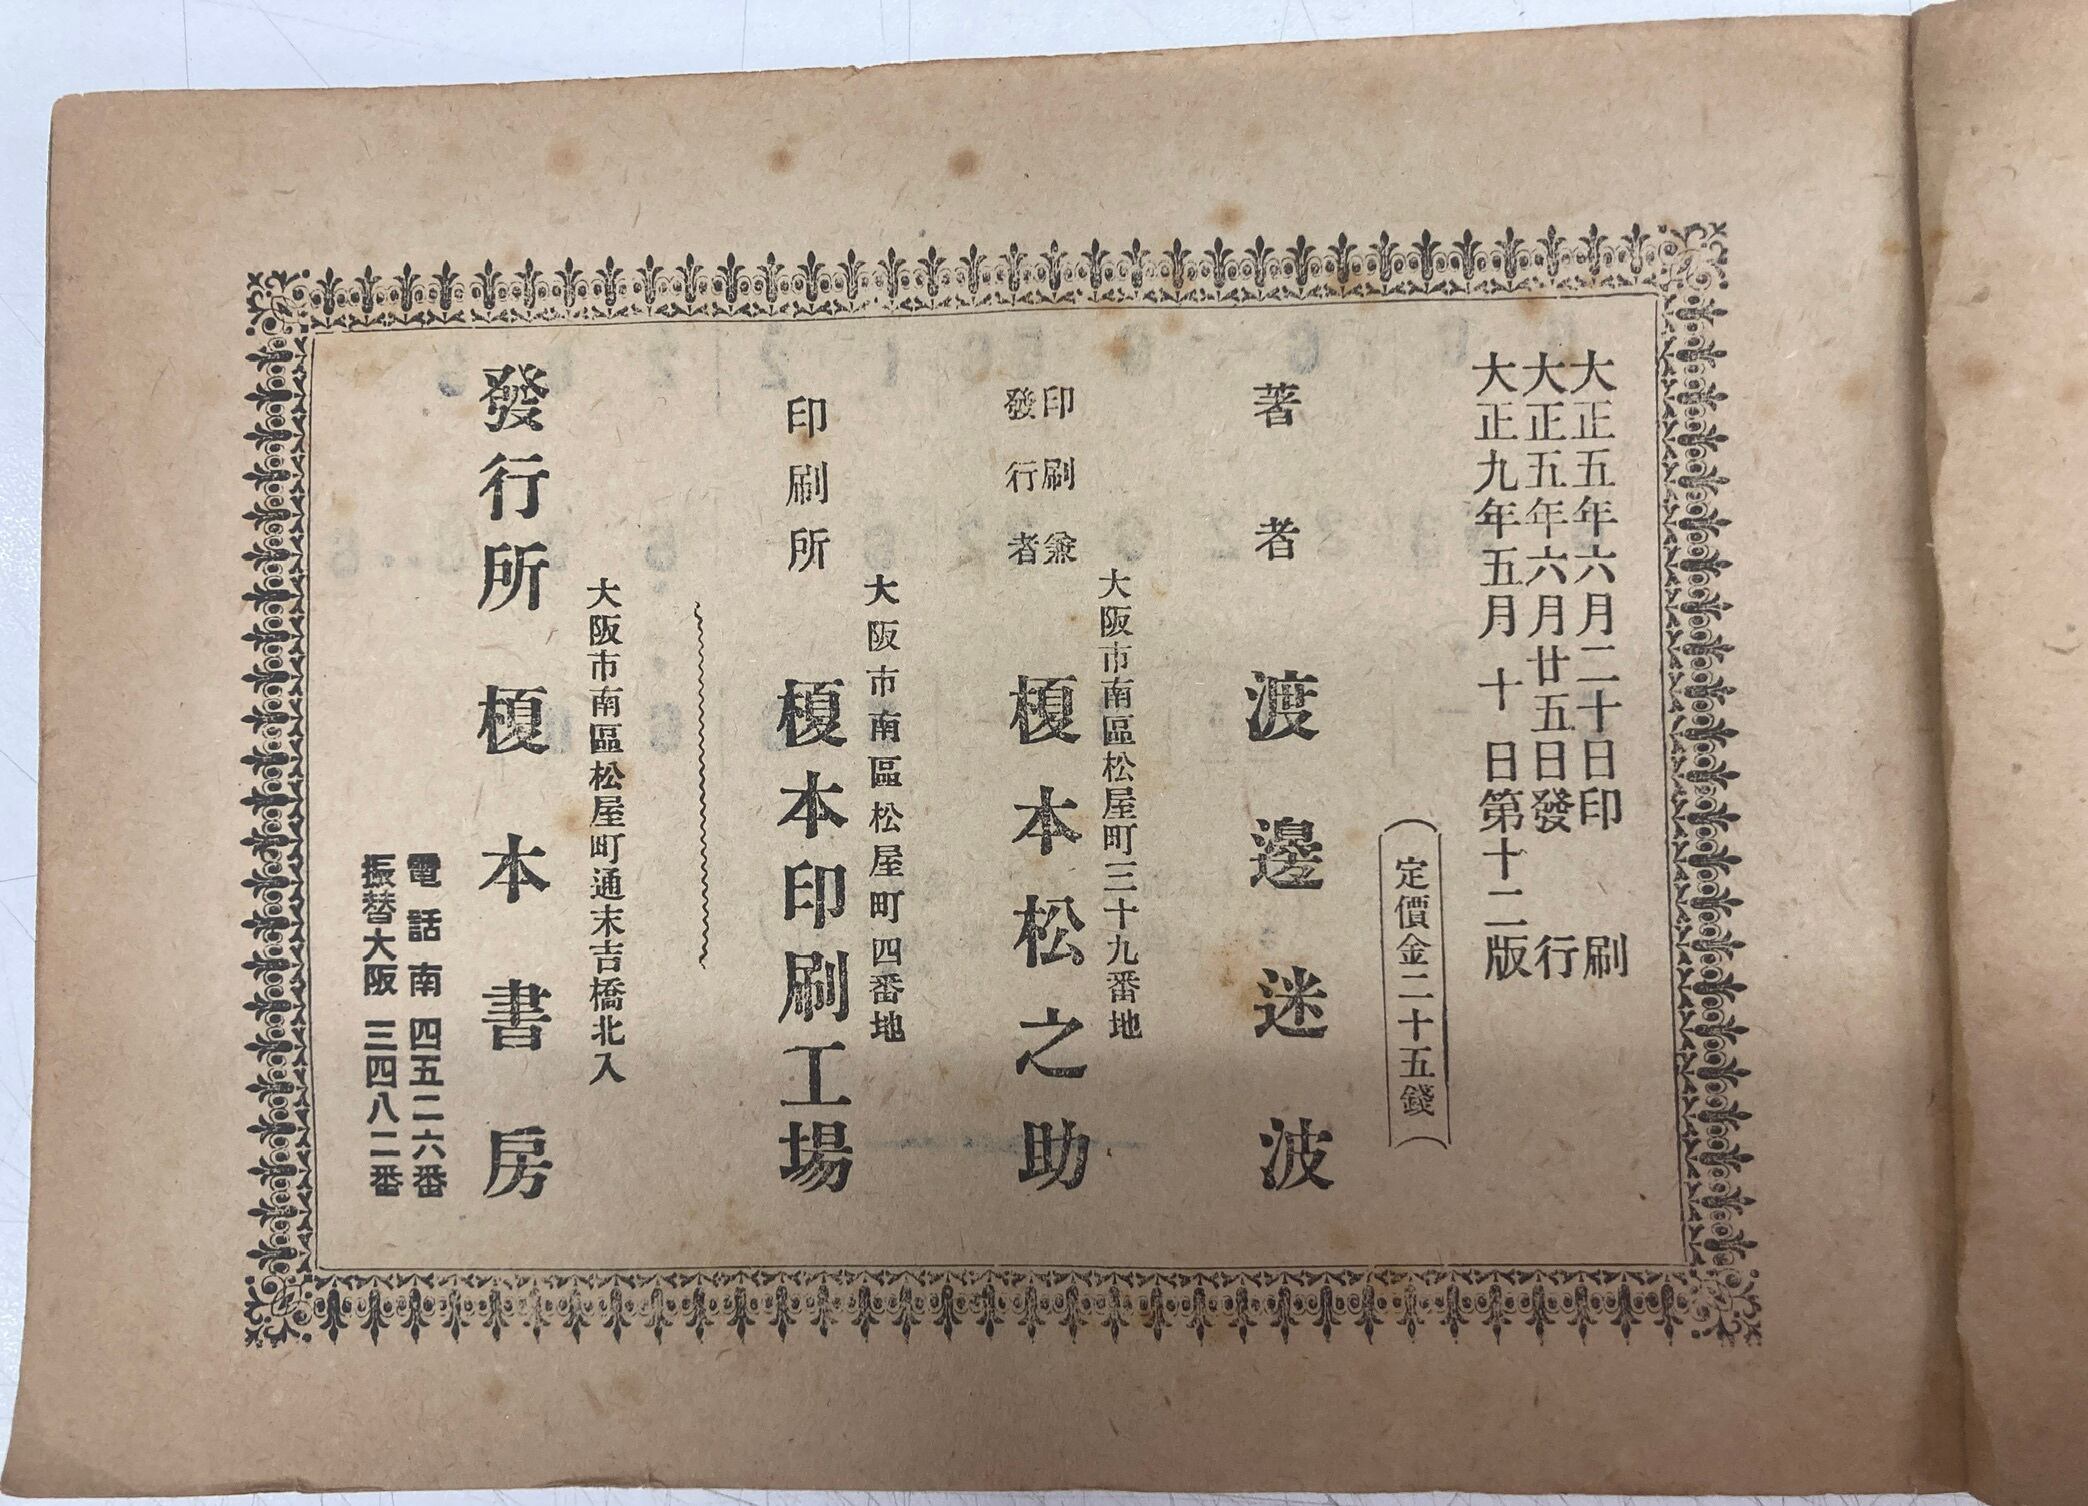 大正五年六月二十日印刷
大正五年六月廿五日發行
大正九年五月十日第十二版
(定價金二十五錢)
著者 渡邊迷波
大阪市南區松屋町三十九番地
印刷兼
發行者 榎本松之助
大阪市南區松屋町四番地
印刷所 榎本印刷工場
大阪市南區松屋町通末吉橋北入
發行所 榎本書房
電話南四五二六番
振替大阪三四八二番